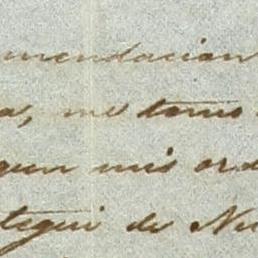 mendacion
a, me tomo
quen mis ord
tegui de Nu